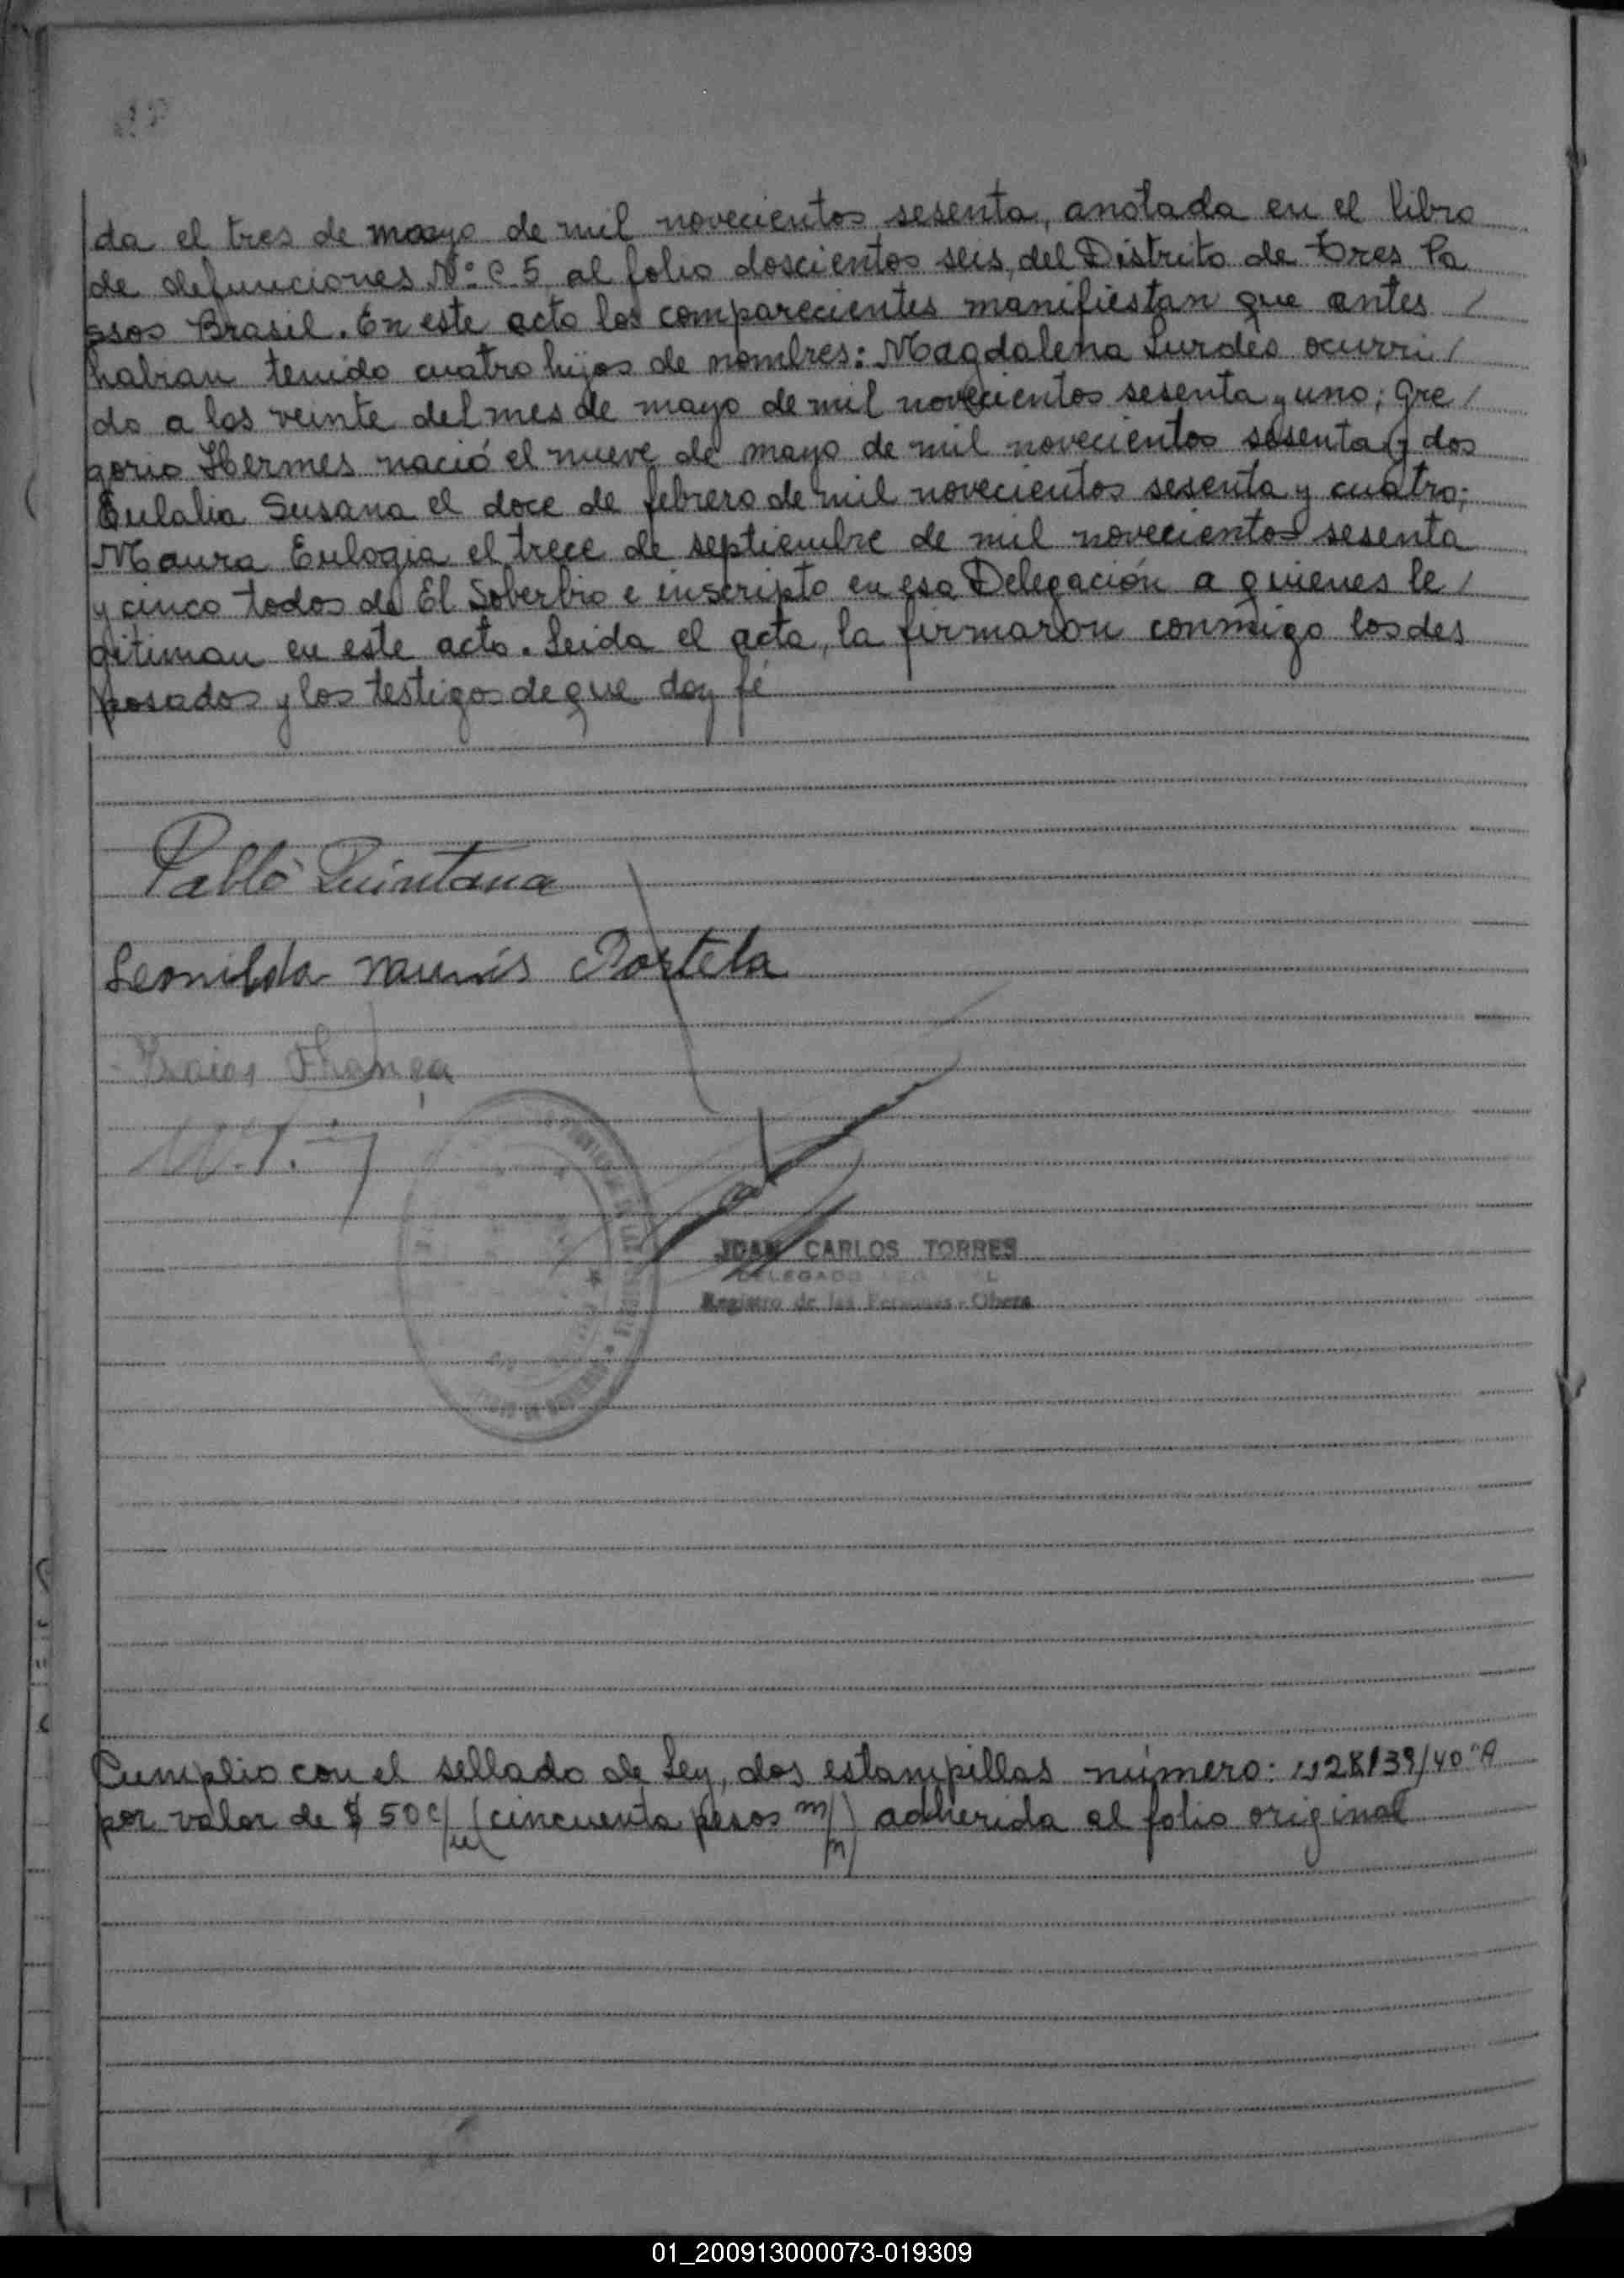 da el tres de mayo de mil novecientos sesenta, anotada en el libro
de defunciones Nº C 5 al folio doscientos seis, del Distrito de Tres Pa
ssos Brasil. En este acto los comparecientes manifiestan que antes /
habian tenido cuatro hijos de nombres: Magdalena Lurdes ocurri /
do a los veinte del mes de mayo de mil novecientos sesenta y uno; Gre /
gorio Hermes nació el nueve de mayo de mil novecientos sesenta y dos
Eulalia Susana el doce de febrero de mil novecientos sesenta y cuatro;
Maura Eulogia el trece de septiembre de mil novecientos sesenta
y cinco todos de El Soberbio e inscripto en esa Delegación a quienes le /
gitiman en este acto. Leida el acta, la firmaron conmigo los des
posados y los testigos de que doy fé
Pablo Quintana
Leonilda Portela
JUAN CARLOS TORRES
DELEGADO
Registro de las Personas - Obera
Cumplio con el sellado de Ley, dos estampillas número: 1928139/40 "A
por valor de $ 50 c/u (cincuenta pesos m/n) adherida al folio original
01_200913000073-019309